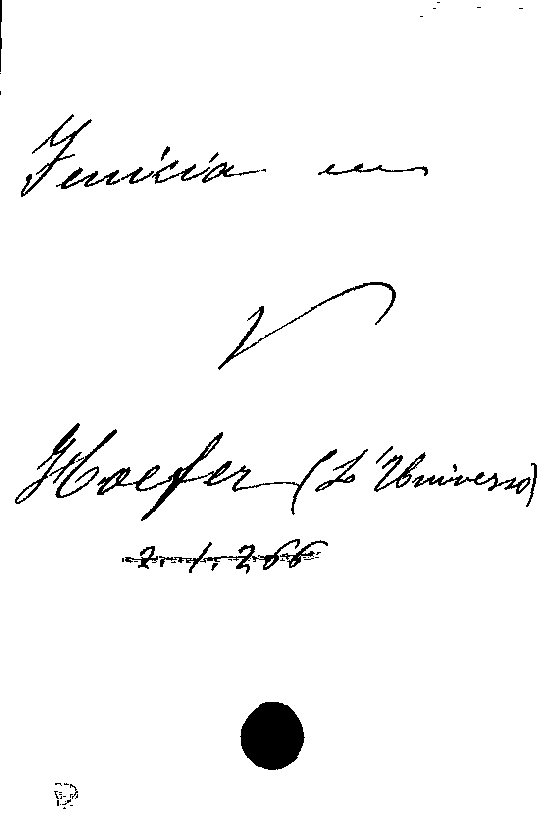 Fenicia
V
Hoefer (L'Universo)
2. 1. 266